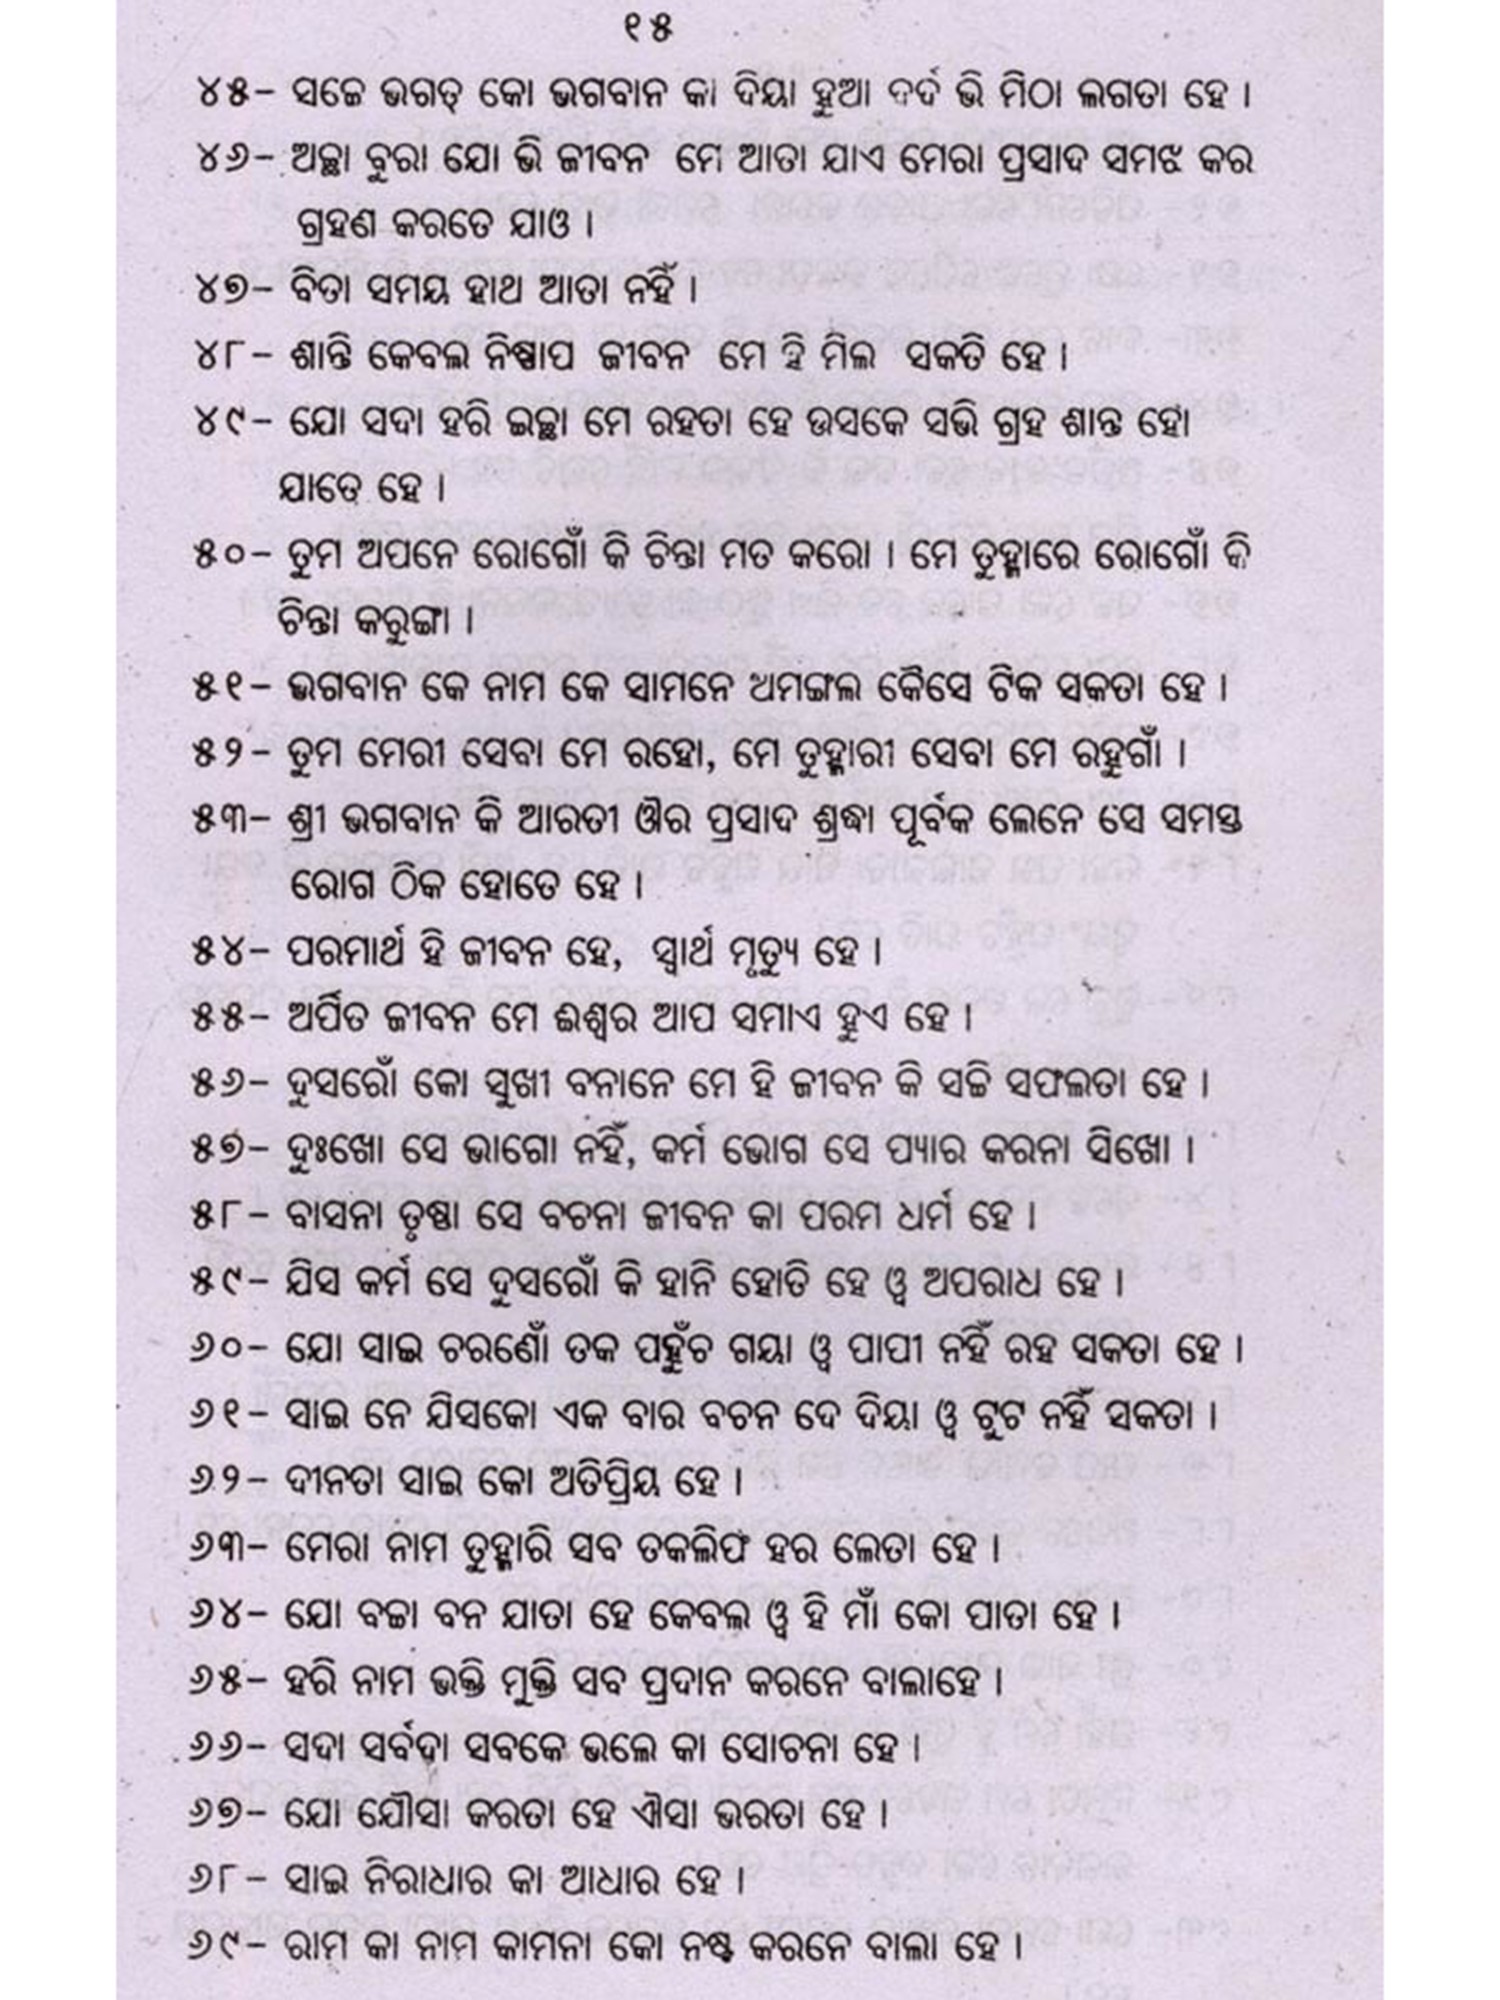 ୧୫
୪୫- ସଚ୍ଚେ ଭଗତ୍ କୋ ଭଗବାନ କା ଦିୟା ହୁଆ ଦର୍ଦ ଭି ମିଠା ଲଗତା ହେ ।
୪୬- ଅଚ୍ଛା ବୁରା ଯୋ ଭି ଜୀବନ ମେ ଆତା ଯାଏ ମେରା ପ୍ରସାଦ ସମଝ କର
ଗ୍ରହଣ କରତେ ଯାଓ ।
୪୭- ବିତା ସମୟ ହାଥ ଆତା ନହିଁ ।
୪୮- ଶାନ୍ତି କେବଲ ନିଷ୍ପାପ ଜୀବନ ମେ ହି ମିଲ ସକତି ହେ ।
୪୯- ଯୋ ସଦା ହରି ଇଚ୍ଛା ମେ ରହତା ହେ ଉସକେ ସଭି ଗ୍ରହ ଶାନ୍ତ ହୋ
ଯାତେ ହେ ।
୫୦- ତୁମ ଅପନେ ରୋଗୋଁ କି ଚିନ୍ତା ମତ କରୋ । ମେ ତୁହ୍ମାରେ ରୋଗୋଁ କି
ଚିନ୍ତା କରୁଙ୍ଗା ।
୫୧- ଭଗବାନ କେ ନାମ କେ ସାମନେ ଅମଙ୍ଗଲ କୈସେ ଟିକ ସକତା ହେ ।
୫୨- ତୁମ ମେରୀ ସେବା ମେ ରହୋ, ମେ ତୁହ୍ମାରୀ ସେବା ମେ ରହୁଗାଁ ।
୫୩- ଶ୍ରୀ ଭଗବାନ କି ଆରତୀ ଔର ପ୍ରସାଦ ଶ୍ରଦ୍ଧା ପୂର୍ବକ ଲେନେ ସେ ସମସ୍ତ
ରୋଗ ଠିକ ହୋତେ ହେ ।
୫୪- ପରମାର୍ଥ ହି ଜୀବନ ହେ, ସ୍ୱାର୍ଥ ମୃତ୍ୟୁ ହେ ।
୫୫- ଅର୍ପିତ ଜୀବନ ମେ ଈଶ୍ୱର ଆପ ସମାଏ ହୁଏ ହେ ।
୫୬- ଦୁସରୋଁ କୋ ସୁଖୀ ବନାନେ ମେ ହି ଜୀବନ କି ସଚ୍ଚି ସଫଲତା ହେ ।
୫୭- ଦୁଃଖୋ ସେ ଭାଗୋ ନହିଁ, କର୍ମ ଭୋଗ ସେ ପ୍ୟାର କରନା ସିଖୋ ।
୫୮- ବାସନା ତୃଷ୍ଣା ସେ ବଚନା ଜୀବନ କା ପରମ ଧର୍ମ ହେ ।
୫୯- ଯିସ କର୍ମ ସେ ଦୁସରୋଁ କି ହାନି ହୋତି ହେ ଓ୍ୱ ଅପରାଧ ହେ ।
୬୦- ଯୋ ସାଇ ଚରଣୋଁ ତକ ପହୁଁଚ ଗୟା ଓ୍ୱ ପାପୀ ନହିଁ ରହ ସକତା ହେ ।
୬୧- ସାଇ ନେ ଯିସକୋ ଏକ ବାର ବଚନ ଦେ ଦିୟା ଓ୍ୱ ଟୁଟ ନହିଁ ସକତା ।
୬୨- ଦୀନତା ସାଇ କୋ ଅତିପ୍ରିୟ ହେ ।
୬୩- ମେରା ନାମ ତୁହ୍ମାରି ସବ ତକଲିଫ ହର ଲେତା ହେ ।
୬୪- ଯୋ ବଚ୍ଚା ବନ ଯାତା ହେ କେବଲ ଓ୍ୱ ହି ମାଁ କୋ ପାତା ହେ ।
୬୫- ହରି ନାମ ଭକ୍ତି ମୁକ୍ତି ସବ ପ୍ରଦାନ କରନେ ବାଲାହେ ।
୬୬- ସଦା ସର୍ବଦା ସବକେ ଭଲେ କା ସୋଚନା ହେ ।
୬୭- ଯୋ ଯୌସା କରତା ହେ ଐସା ଭରତା ହେ ।
୬୮- ସାଇ ନିରାଧାର କା ଆଧାର ହେ ।
୬୯- ରାମ କା ନାମ କାମନା କୋ ନଷ୍ଟ କରନେ ବାଲା ହେ ।